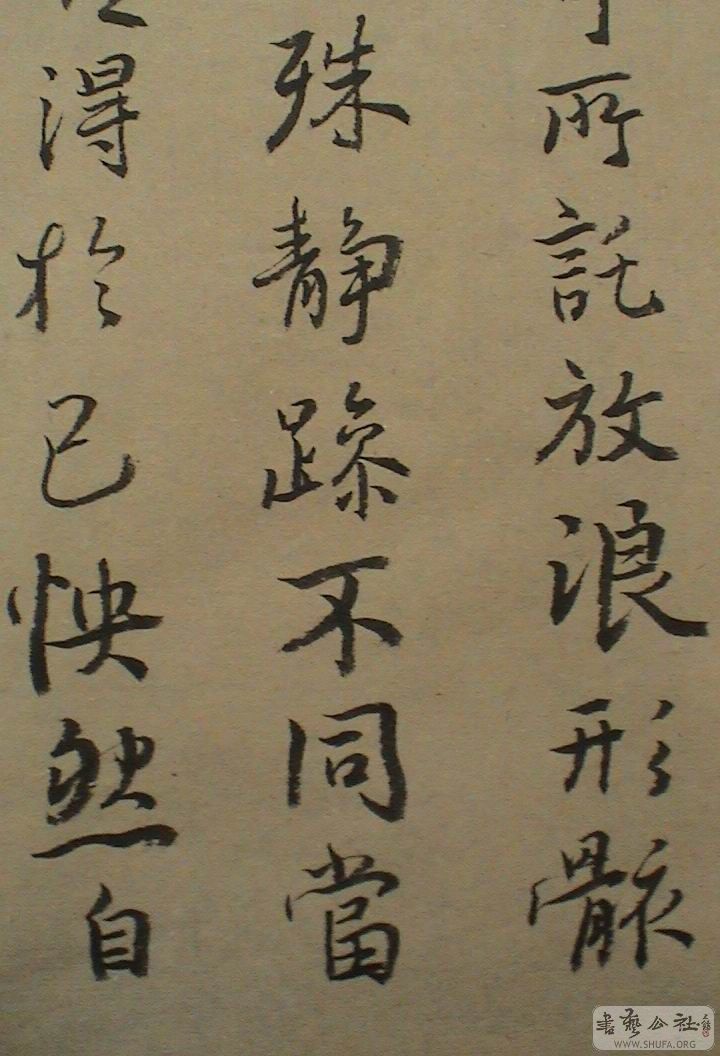 所託放浪形骸
殊静躁不同當
得於己怏然自
書藝公社
WWW.SHUFA.ORG